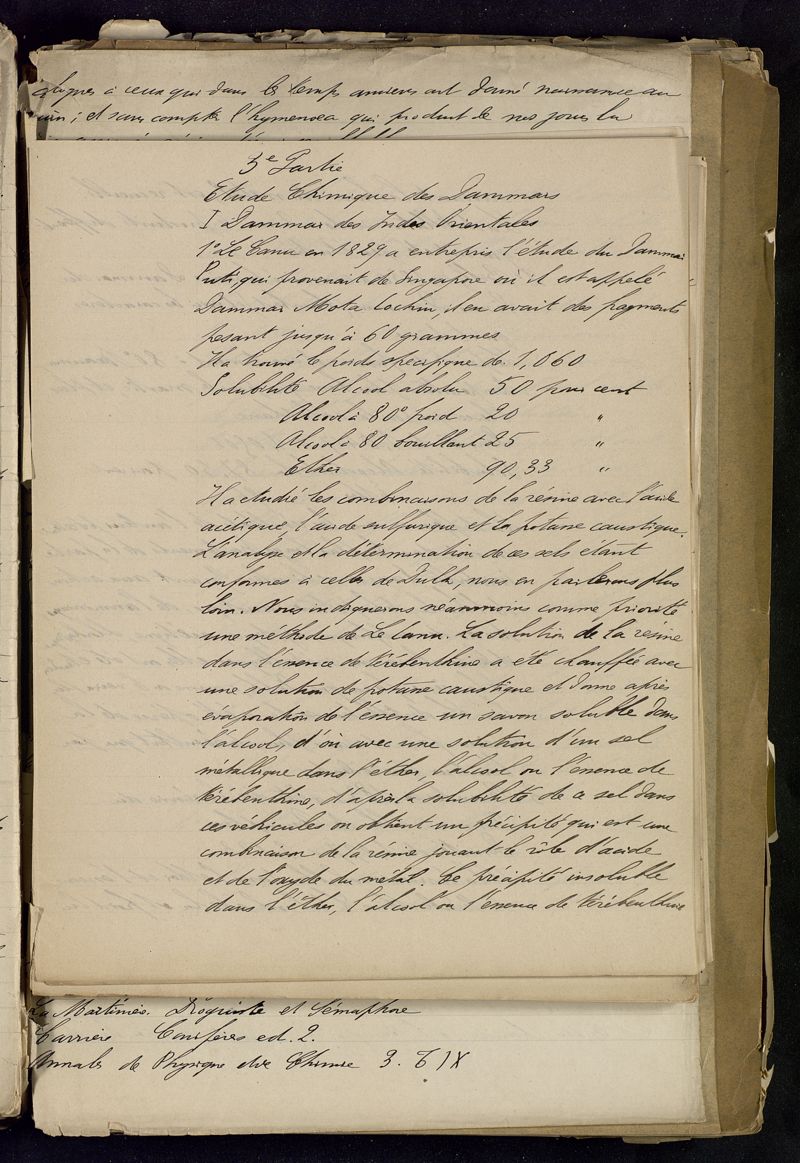 logues à ceux qui dans les temps anciens ont donné naissance au
; et sans compter l'hymenoea qui produit de nos jours la
3e Partie
Etude Chimique des Dammars
I Dammar des Indes Orientales
1° Le Canu en 1829 a entrepris l'étude du Dammar
Puti, qui provenait de Singapore où il est appelé
Dammar Mota Cochin, il en avait des fragments
pesant jusqu'à 60 grammes
Il a trouvé le poids spécifique de 1,060
Solubilité Alcool absolu 50 pour cent
Alcool à 80° froid 20 "
Alcool à 80 bouillant 25 "
Ether 90,33 "
Il a étudié les combinaisons de la résine avec l'acide
acétique, l'acide sulfurique et la potasse caustique.
L'analyse et la détermination de ces sels étant
conformes à celles de Dulk, nous en parlerons plus
loin. Nous indiquerons néanmoins comme priorité
une méthode de Le Canu. La solution de la résine
dans l'essence de térébenthine a été chauffée avec
une solution de potasse caustique et donne après
évaporation de l'essence un savon soluble dans
l'alcool, d'où avec une solution d'un sel
métallique dans l'éther, l'alcool ou l'essence de
térébenthine, d'après la solubilité de ce sel dans
ces véhicules on obtient un précipité qui est une
combinaison de la résine jouant le rôle d'acide
et de l'oxyde du métal. Ce précipité insoluble
dans l'éther, l'alcool ou l'essence de térébenthine
La Martinière. Droguiste et Sémaphore
Carrière Conifères ed. 2.
Annales de Physique et de Chimie 3. T IX